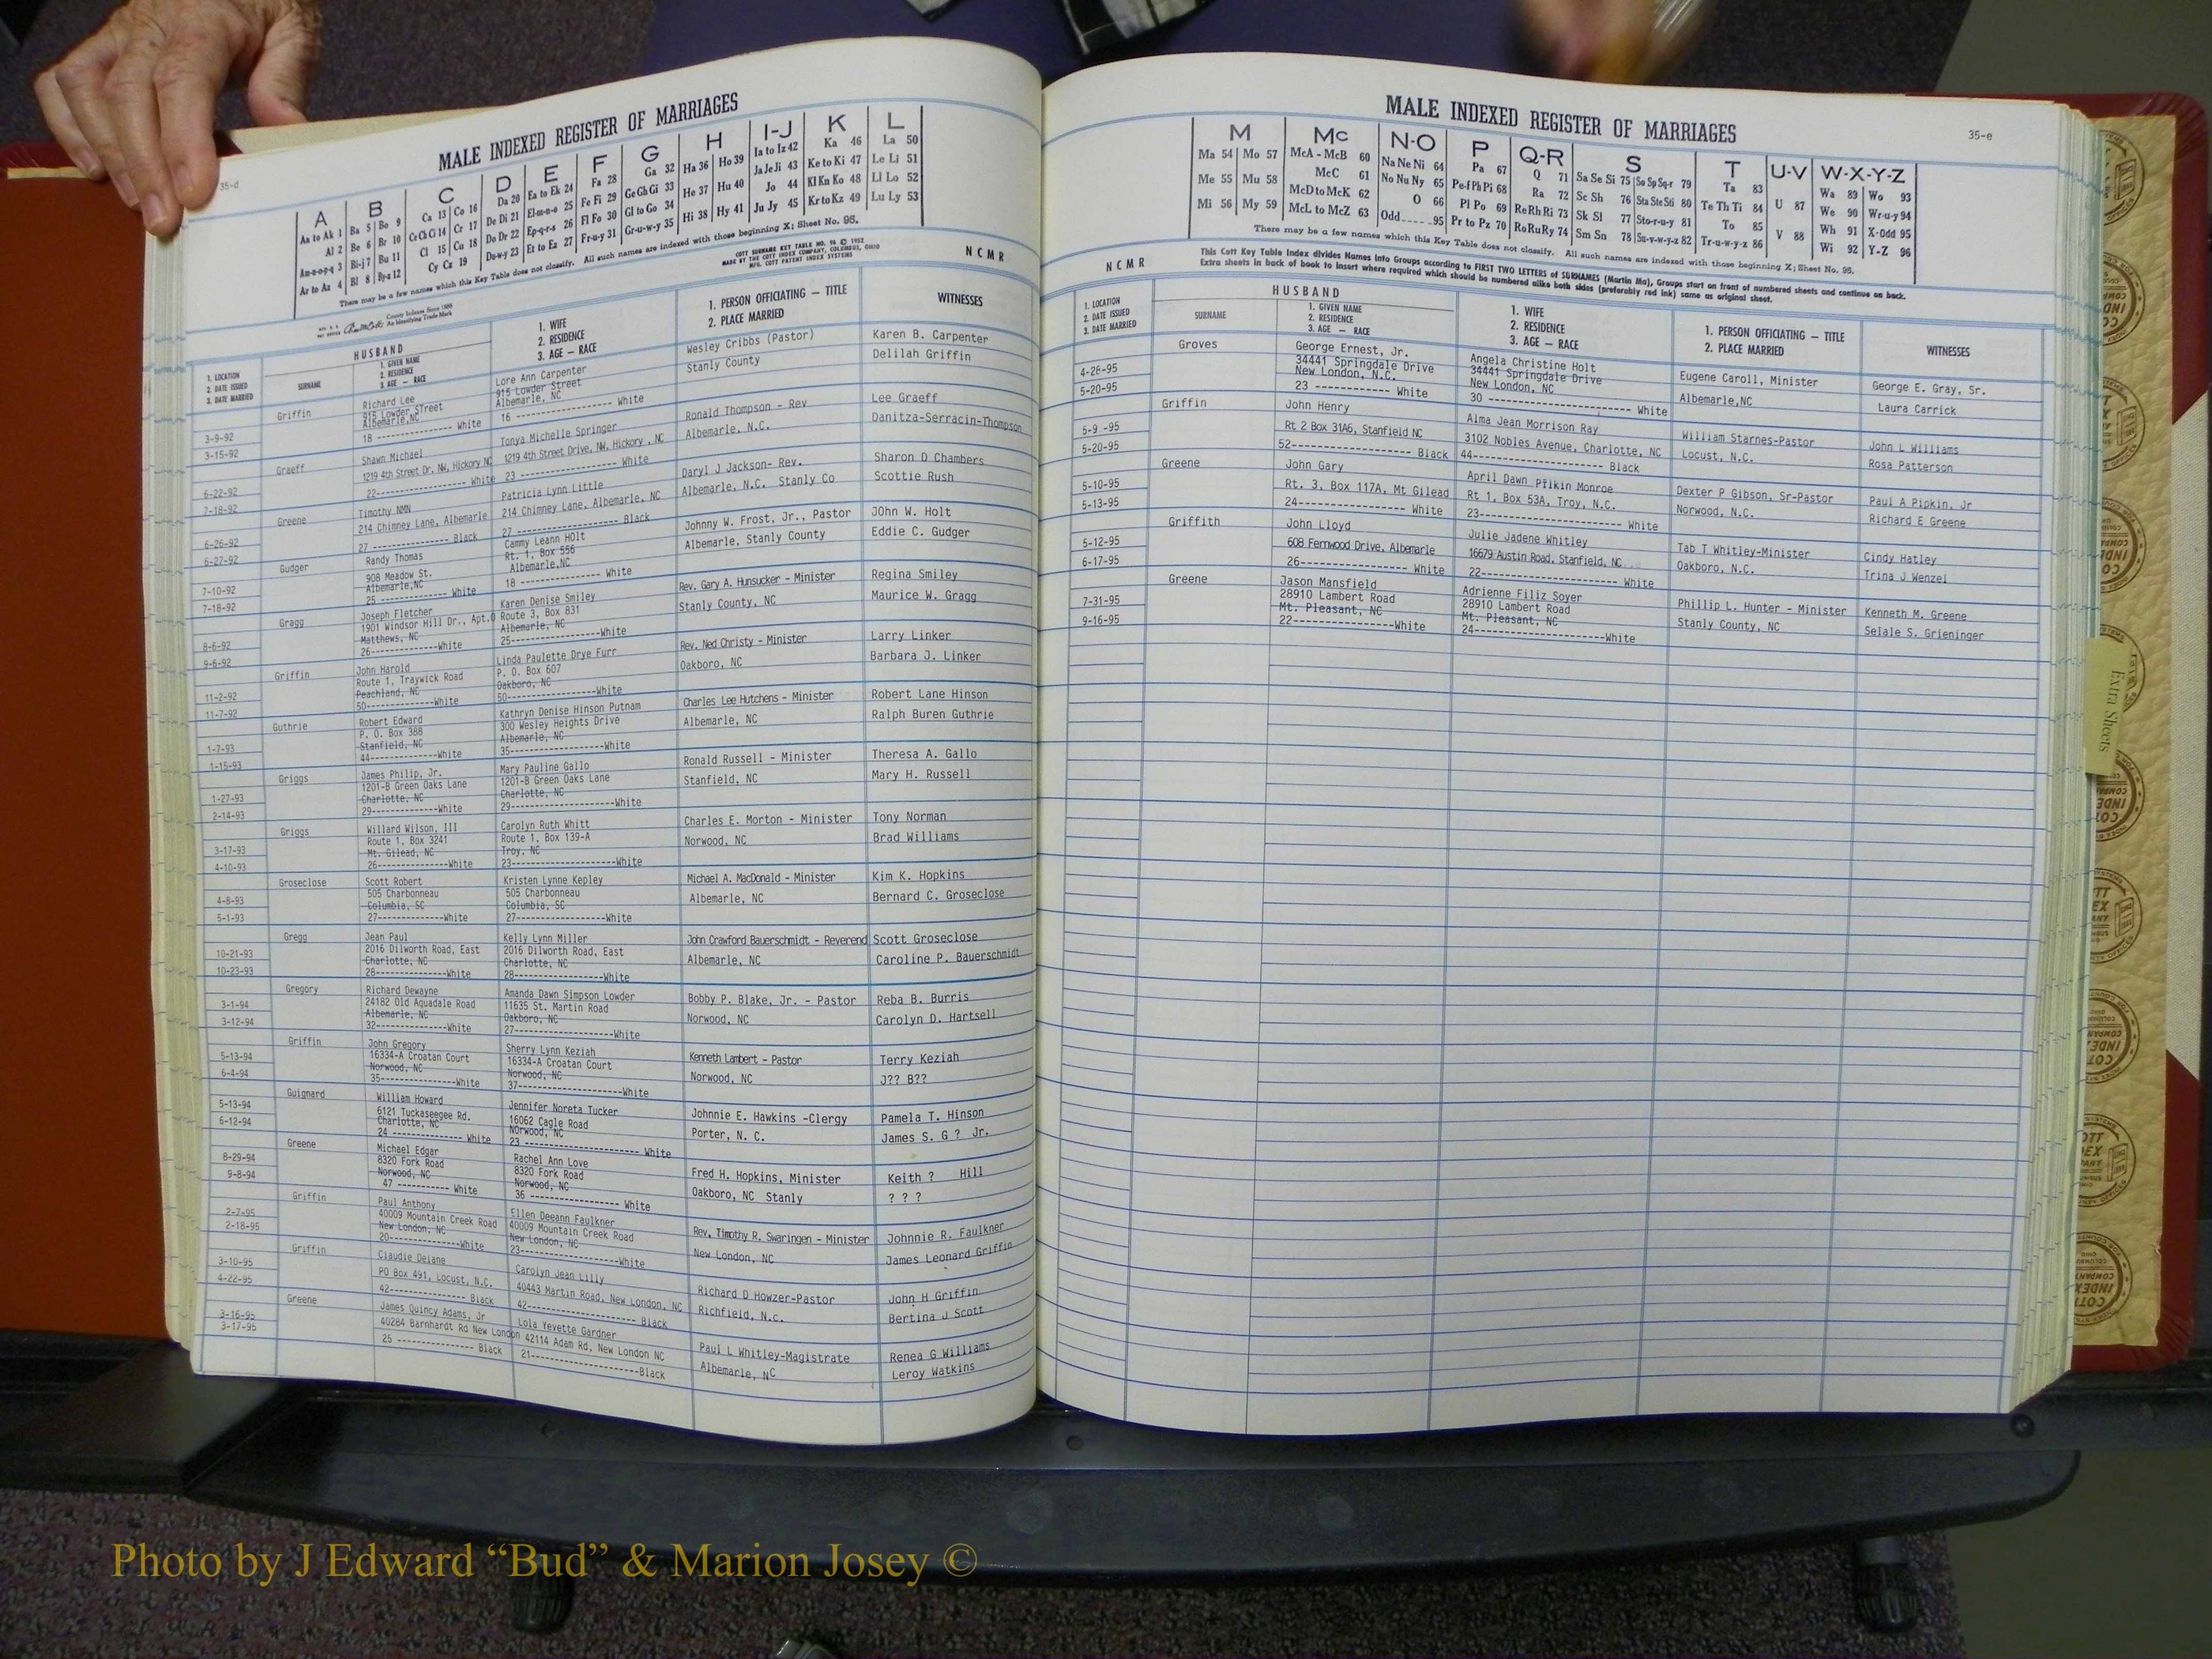 35-d
MALE INDEXED REGISTER OF MARRIAGES
A B C D E F G H I-J K L
Aa to Ak 1 Ba 5 Bo 9 Ca 13 Co 16 Da 20 Ea to Ek 24 Fa 28 Ga 32 Ha 36 Ho 39 Ia to Iz 42 Ka 46 La 50
Al 2 Be 6 Br 10 Ce Ch Ci 14 Cr 17 De Di 21 El-m-n-o 25 Fe Fi 29 Ge Gh Gi 33 He 37 Hu 40 Ja Je Ji 43 Ke to Ki 47 Le Li 51
Am-n-o-p-q 3 Bi-j 7 Bu 11 Cl 15 Cu 18 Do Dr 22 Ep-q-r-s 26 Fl Fo 30 Gl to Go 34 Hi 38 Hy 41 Jo 44 Kl Kn Ko 48 Ll Lo 52
Ar to Az 4 Bl 8 By-z 12 Cy Cz 19 Du-w-y 23 Et to Ez 27 Fr-u-y 31 Gr-u-w-y 35 Ju Jy 45 Kr to Kz 49 Lu Ly 53
There may be a few names which this Key Table does not classify. All such names are indexed with those beginning X; Sheet No. 95.
County Indexes Since 1888
An Identifying Trade Mark
COTT SURNAME KEY TABLE NO. 96 © 1952
MADE BY THE COTT INDEX COMPANY, COLUMBUS, OHIO
MFG. COTT PATENT INDEX SYSTEMS
NCMR
1. LOCATION
2. DATE ISSUED
3. DATE MARRIED
HUSBAND
SURNAME
1. GIVEN NAME
2. RESIDENCE
3. AGE — RACE
1. WIFE
2. RESIDENCE
3. AGE — RACE
1. PERSON OFFICIATING — TITLE
2. PLACE MARRIED
WITNESSES
Griffin Richard Lee Lore Ann Carpenter Wesley Cribbs (Pastor) Karen B. Carpenter
915 Lowder STreet 915 Lowder Street Stanly County Delilah Griffin
Albemarle,NC Albemarle, NC
3-9-92 18 ---------- White 16 ---------- White
3-15-92
Graeff Shawn Michael Tonya Michelle Springer Ronald Thompson - Rev Lee Graeff
1219 4th Street Dr, NW, Hickory NC 1219 4th Street Drive, NW, Hickory , NC Albemarle, N.C. Danitza-Serracin-Thompson
6-22-92 22---------- White 23 ---------- White
7-18-92
Greene Timothy NMN Patricia Lynn Little Daryl J Jackson- Rev. Sharon D Chambers
214 Chimney Lane, Albemarle 214 Chimney Lane, Albemarle, NC Albemarle, N.C. Stanly Co Scottie Rush
6-26-92 27 ---------- Black 27 ---------- Black
6-27-92
Gudger Randy Thomas Cammy Leann HOlt Johnny W. Frost, Jr., Pastor JOhn W. Holt
908 Meadow St. Rt. 1, Box 556 Albemarle, Stanly County Eddie C. Gudger
Albemarle,NC Albemarle,NC
7-10-92 25 ---------- White 18 ---------- White
7-18-92
Gragg Joseph Fletcher Karen Denise Smiley Rev. Gary A. Hunsucker - Minister Regina Smiley
1901 Windsor Hill Dr., Apt.O Route 3, Box 831 Stanly County, NC Maurice W. Gragg
Matthews, NC Albemarle, NC
8-6-92 26----------White 25----------White
9-6-92
Griffin John Harold Linda Paulette Drye Furr Rev. Ned Christy - Minister Larry Linker
Route 1, Traywick Road P. O. Box 607 Oakboro, NC Barbara J. Linker
Peachland, NC Oakboro, NC
11-2-92 50----------White 50----------White
11-7-92
Guthrie Robert Edward Kathryn Denise Hinson Putnam Charles Lee Hutchens - Minister Robert Lane Hinson
P. O. Box 388 300 Wesley Heights Drive Albemarle, NC Ralph Buren Guthrie
Stanfield, NC Albemarle, NC
1-7-93 44----------White 35----------White
1-15-93
Griggs James Philip, Jr. Mary Pauline Gallo Ronald Russell - Minister Theresa A. Gallo
1201-B Green Oaks Lane 1201-B Green Oaks Lane Stanfield, NC Mary H. Russell
1-27-93 Charlotte, NC Charlotte, NC
2-14-93 29----------White 29----------White
Griggs Willard Wilson, III Carolyn Ruth Whitt Charles E. Morton - Minister Tony Norman
Route 1, Box 3241 Route 1, Box 139-A Norwood, NC Brad Williams
3-17-93 Mt. Gilead, NC Troy, NC
4-10-93 26----------White 23----------White
Groseclose Scott Robert Kristen Lynne Kepley Michael A. MacDonald - Minister Kim K. Hopkins
4-8-93 505 Charbonneau 505 Charbonneau Albemarle, NC Bernard C. Groseclose
Columbia, SC Columbia, SC
5-1-93 27----------White 27----------White
Gregg Jean Paul Kelly Lynn Miller John Crawford Bauerschmidt - Reverend Scott Groseclose
10-21-93 2016 Dilworth Road, East 2016 Dilworth Road, East Albemarle, NC Caroline P. Bauerschmidt
Charlotte, NC Charlotte, NC
10-23-93 28----------White 28----------White
Gregory Richard Dewayne Amanda Dawn Simpson Lowder Bobby P. Blake, Jr. - Pastor Reba B. Burris
3-1-94 24182 Old Aquadale Road 11635 St. Martin Road Norwood, NC Carolyn D. Hartsell
Albemarle, NC Oakboro, NC
3-12-94 32----------White 27----------White
Griffin John Gregory Sherry Lynn Keziah Kenneth Lambert - Pastor Terry Keziah
5-13-94 16334-A Croatan Court 16334-A Croatan Court Norwood, NC J?? B??
Norwood, NC Norwood, NC
6-4-94 35----------White 37----------White
Guignard William Howard Jennifer Noreta Tucker Johnnie E. Hawkins -Clergy Pamela T. Hinson
5-13-94 6121 Tuckaseegee Rd. 16062 Cagle Road Porter, N. C. James S. G ? Jr.
Charlotte, NC Norwood, NC
6-12-94 24 ---------- White 23 ---------- White
Greene Michael Edgar Rachel Ann Love Fred H. Hopkins, Minister Keith ? Hill
8-29-94 8320 Fork Road 8320 Fork Road Oakboro, NC Stanly ? ? ?
Norwood, NC Norwood, NC
9-8-94 47 ---------- White 36 ---------- White
Griffin Paul Anthony Ellen Deeann Faulkner Rev. Timothy R. Swaringen - Minister Johnnie R. Faulkner
2-7-95 40009 Mountain Creek Road 40009 Mountain Creek Road New London, NC James Leonard Griffin
2-18-95 New London, NC New London, NC
20----------White 23----------White
Griffin Claudie Delane Carolyn Jean Lilly Richard D Howzer-Pastor John H Griffin
3-10-95 PO Box 491, Locust, N.C. 40443 Martin Road, New London, NC Richfield, N.c. Bertina J Scott
4-22-95 42---------- Black 42---------- Black
Greene James Quincy Adams, Jr Lola Yevette Gardner Paul L Whitley-Magistrate Renea G Williams
3-16-95 40284 Barnhardt Rd New London 42114 Adam Rd, New London NC Albemarle, NC Leroy Watkins
3-17-95 25 ---------- Black 21----------Black
35-e
MALE INDEXED REGISTER OF MARRIAGES
M Mc N-O P Q-R S T U-V W-X-Y-Z
Ma 54 Mo 57 McA - McB 60 Na Ne Ni 64 Pa 67 Q 71 Sa Se Si 75 So Sp Sq-r 79 Ta 83 U 87 Wa 89 Wo 93
Me 55 Mu 58 McC 61 No Nu Ny 65 Pe-f Ph Pi 68 Ra 72 Sc Sh 76 Sta Ste Sti 80 Te Th Ti 84 V 88 We 90 Wr-u-y 94
Mi 56 My 59 McD to McK 62 O 66 Pl Po 69 Re Rh Ri 73 Sk Sl 77 Sto-r-u-y 81 To 85 Wh 91 X-Odd 95
McL to McZ 63 Odd 95 Pr to Pz 70 Ro Ru Ry 74 Sm Sn 78 Su-v-w-y-z 82 Tr-u-w-y-z 86 Wi 92 Y-Z 96
There may be a few names which this Key Table does not classify. All such names are indexed with those beginning X; Sheet No. 95.
This Cott Key Table Index divides Names into Groups according to FIRST TWO LETTERS of SURNAMES (Martin Ma), Groups start on front of numbered sheets and continue on back.
Extra sheets in back of book to insert where required which should be numbered alike both sides (preferably red ink) same as original sheet.
NCMR
1. LOCATION
2. DATE ISSUED
3. DATE MARRIED
HUSBAND
SURNAME
1. GIVEN NAME
2. RESIDENCE
3. AGE — RACE
1. WIFE
2. RESIDENCE
3. AGE — RACE
1. PERSON OFFICIATING — TITLE
2. PLACE MARRIED
WITNESSES
Groves George Ernest, Jr. Angela Christine Holt Eugene Caroll, Minister George E. Gray, Sr.
4-28-95 34441 Springdale Drive 34441 Springdale Drive Albemarle,NC Laura Carrick
New London, N.C. New London, NC
5-20-95 23 ---------- White 30 ---------- White
Griffin John Henry Alma Jean Morrison Ray William Starnes-Pastor John L Williams
5-9 -95 Rt 2 Box 31A6, Stanfield NC 3102 Nobles Avenue, Charlotte, NC Locust, N.C. Rosa Patterson
5-20-95 52---------- Black 44---------- Black
Greene John Gary April Dawn Pfikin Monroe Dexter P Gibson, Sr-Pastor Paul A Pipkin, Jr
5-10-95 Rt. 3, Box 117A, Mt Gilead Rt 1, Box 53A, Troy, N.C. Norwood, N.C. Richard E Greene
5-13-95 24---------- White 23---------- White
Griffith John Lloyd Julie Jadene Whitley Tab T Whitley-Minister Cindy Hatley
5-12-95 608 Fernwood Drive, Albemarle 16679 Austin Road, Stanfield, NC Oakboro, N.C. Trina J Wenzel
6-17-95 26---------- White 22---------- White
Greene Jason Mansfield Adrienne Filiz Soyer Phillip L. Hunter - Minister Kenneth M. Greene
7-31-95 28910 Lambert Road 28910 Lambert Road Stanly County, NC Selale S. Grieninger
Mt. Pleasant, NC Mt. Pleasant, NC
9-16-95 22----------White 24----------White
Extra Sheets
Photo by J Edward “Bud” & Marion Josey ©